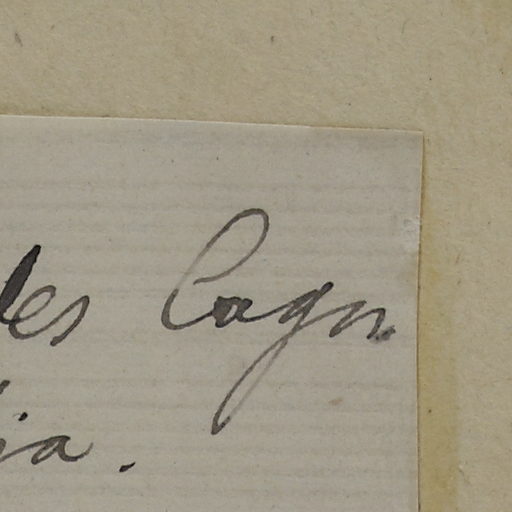 les Cagn
ia.